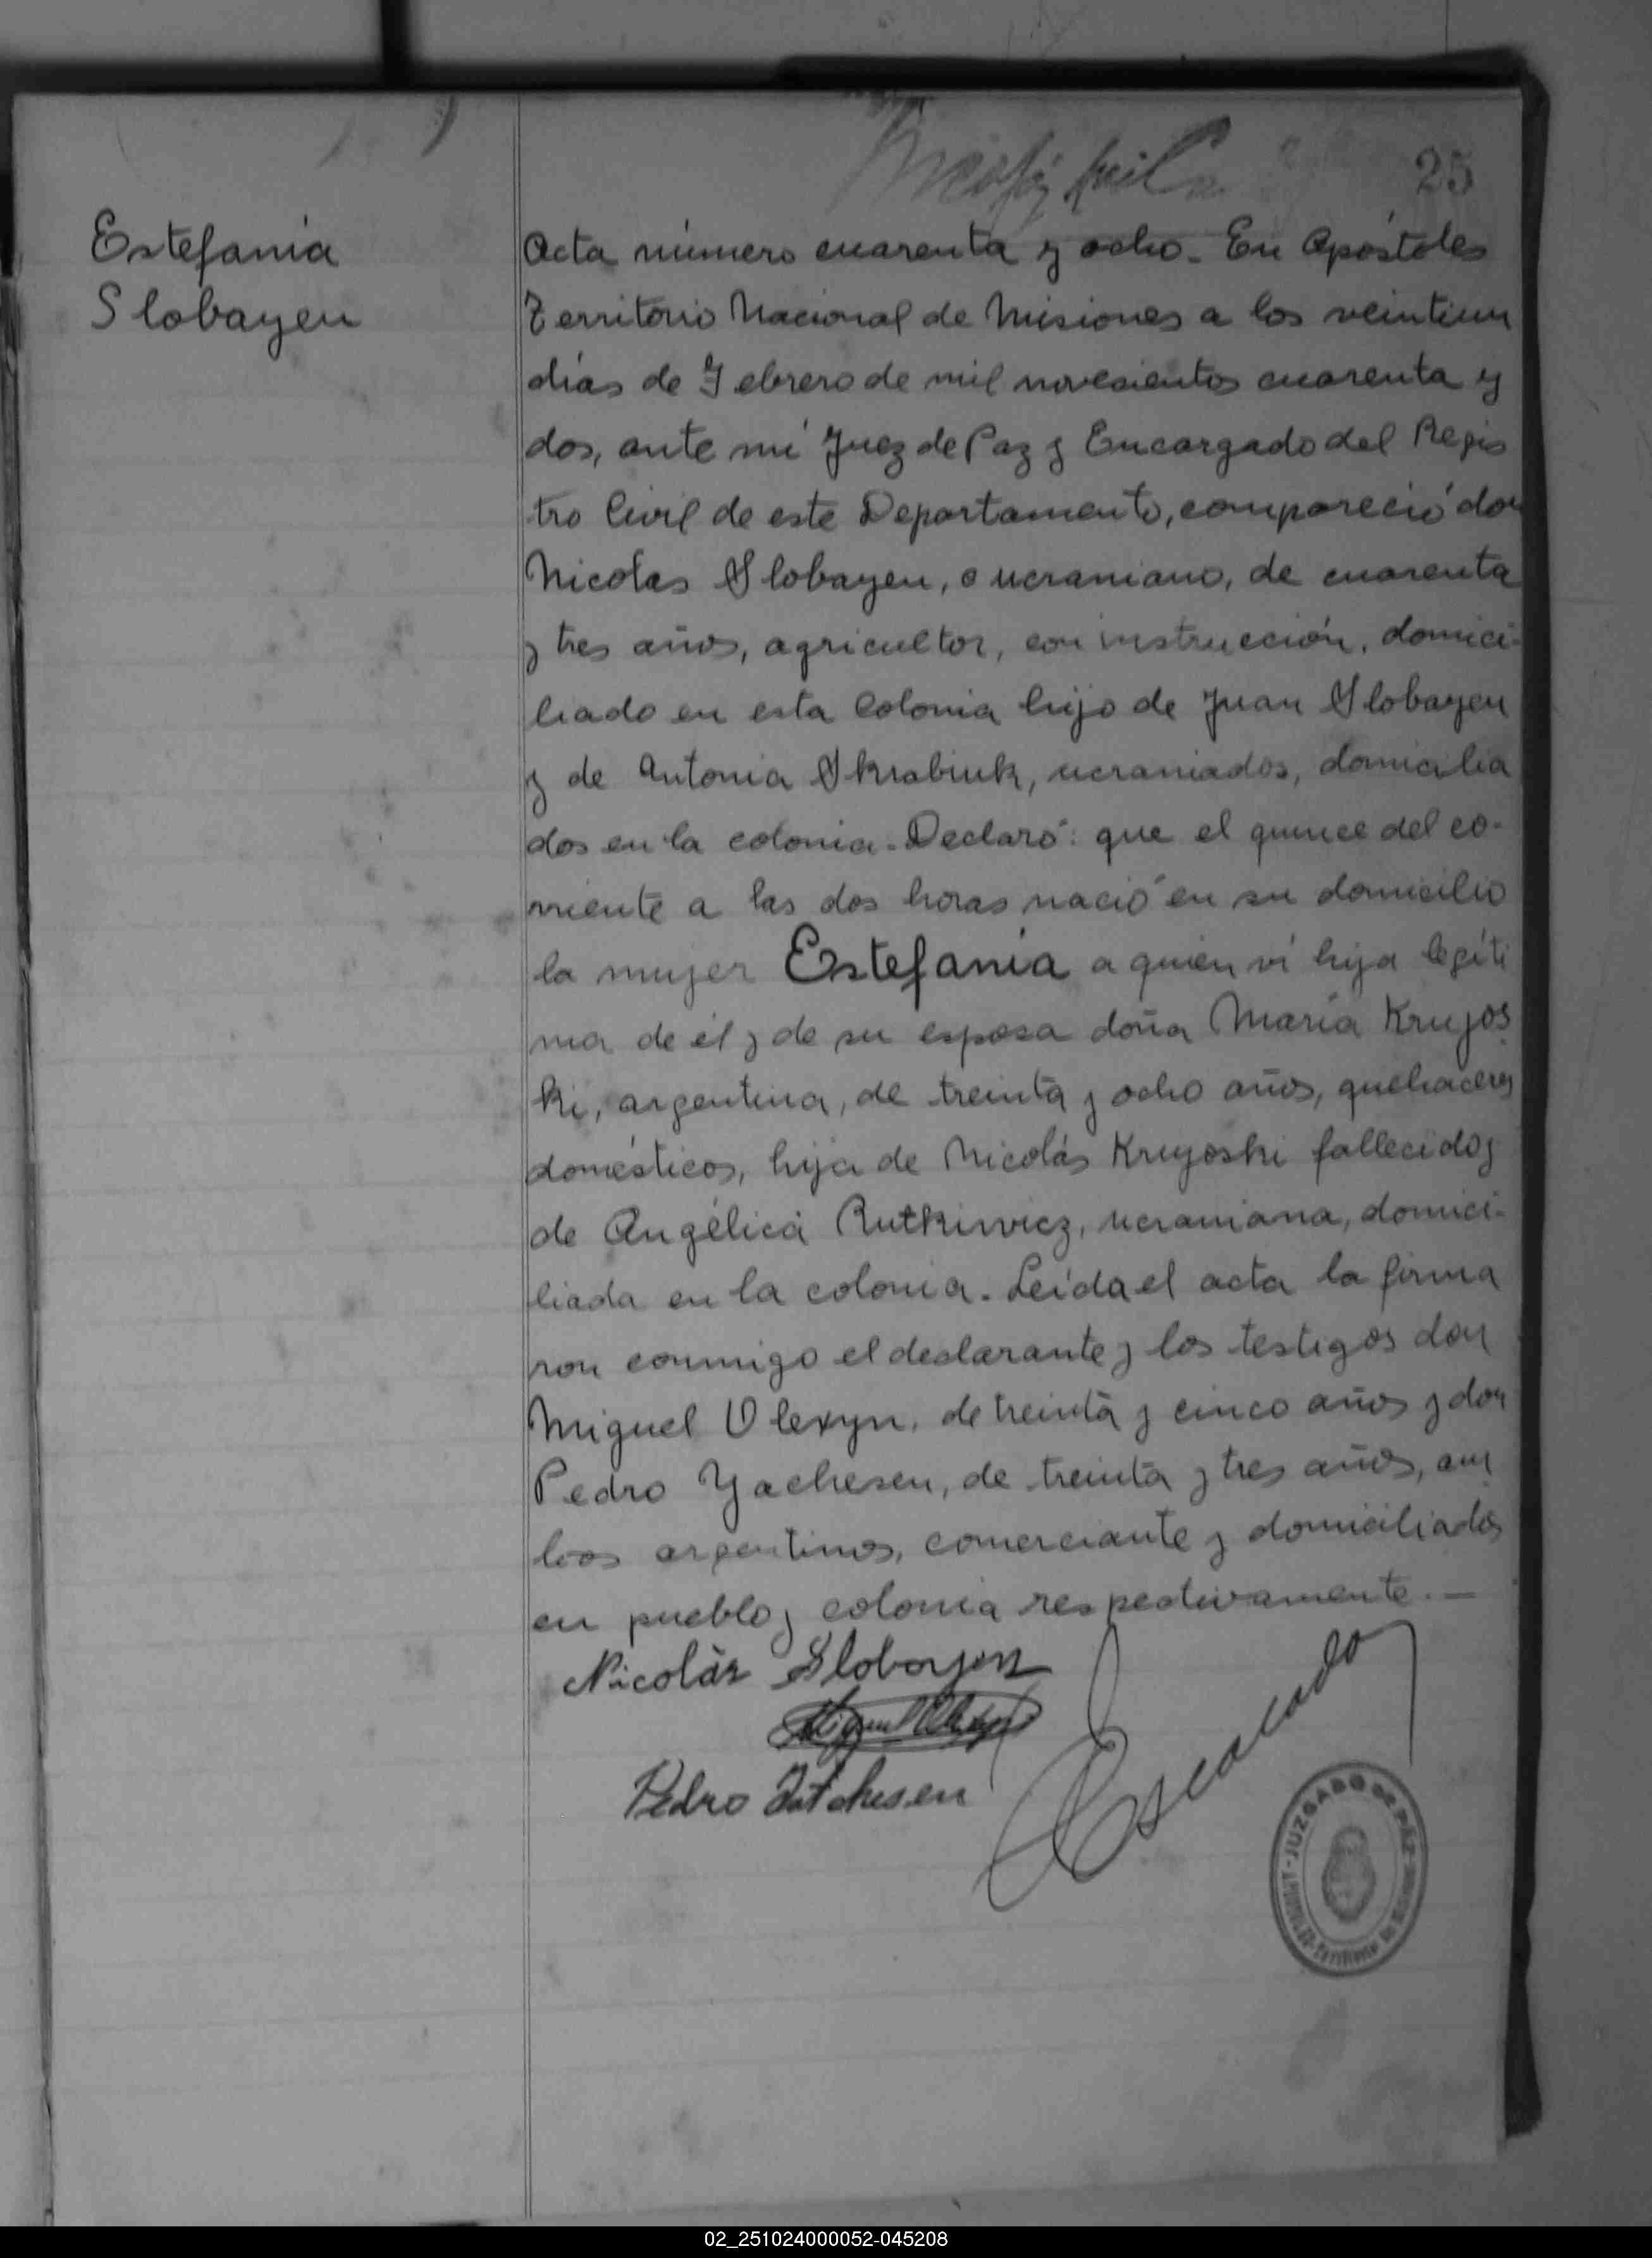 25
Estefanía
Slobayen
Acta número cuarenta y ocho. En Apóstoles
Territorio Nacional de Misiones a los veintiun
días de Febrero de mil novecientos cuarenta y
dos, ante mí Juez de Paz y Encargado del Regis
tro Civil de este Departamento, compareció don
Nicolas Slobayen, ucraniano, de cuarenta
y tres años, agricultor, con instrucción, domici-
liado en esta Colonia hijo de Juan Slobayen
y de Antonia Skrabiuk, ucraniados, domicilia
dos en la colonia. Declaró: que el quince del co-
rriente a las dos horas nació en su domicilio
la mujer Estefanía a quien ví hija legíti
ma de él y de su esposa doña María Kruyos
ki, argentina, de treinta y ocho años, quehaceres
domésticos, hija de Nicolás Kruyoski fallecido y
de Angélica Rutkiwicz, ucraniana, domici-
liada en la colonia. Leída el acta la firma
ron conmigo el declarante y los testigos don
Miguel Olexyn, de treinta y cinco años y don
Pedro Yachesen, de treinta y tres años, am
bos argentinos, comerciante y domiciliados
en pueblo y colonia respectivamente. —
Nicolás Slobayen
Miguel Olexyn
Pedro Iatchesen
Escalado
JUZGADO DE PAZ
APOSTOLES - Territorio de Misiones
02_251024000052-045208